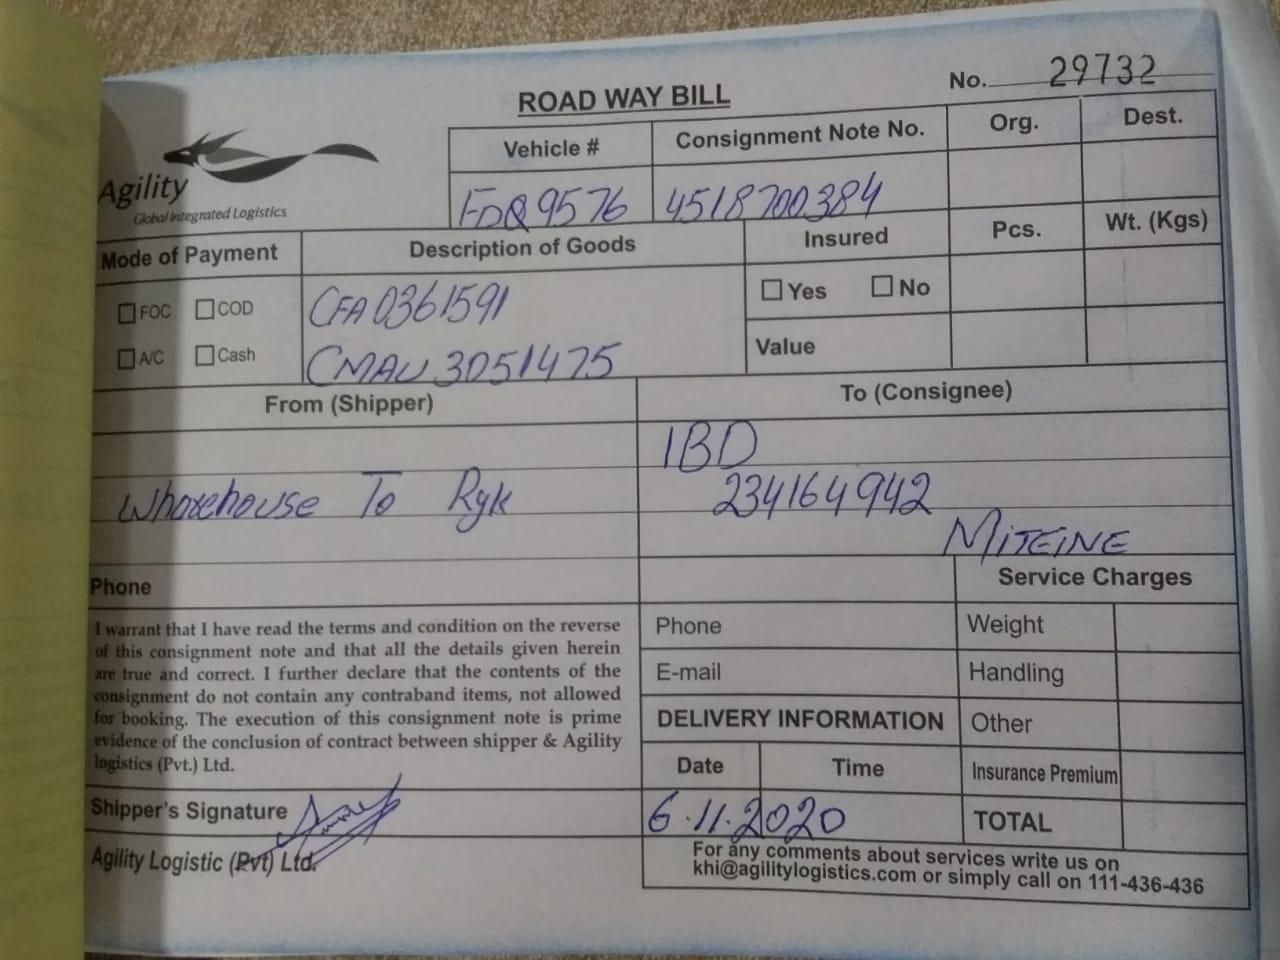 No. 29732
ROAD WAY BILL
Agility
Global Integrated Logistics
Vehicle # Consignment Note No. Org. Dest.
4518700384
Mode of Payment Description of Goods Insured Pcs. Wt. (Kgs)
FOC COD CFA0361591 Yes No
A/C Cash CMAU 3051475 Value
From (Shipper) To (Consignee)
IBD
Whorehouse To Ryk 234164942
MITEINE
Phone Service Charges
I warrant that I have read the terms and condition on the reverse
of this consignment note and that all the details given herein
are true and correct. I further declare that the contents of the
consignment do not contain any contraband items, not allowed
for booking. The execution of this consignment note is prime
evidence of the conclusion of contract between shipper & Agility
logistics (Pvt.) Ltd.
Phone Weight
E-mail Handling
DELIVERY INFORMATION Other
Date Time Insurance Premium
Shipper's Signature 6.11.2020 TOTAL
Agility Logistic (Pvt) Ltd.
For any comments about services write us on
khi@agilitylogistics.com or simply call on 111-436-436